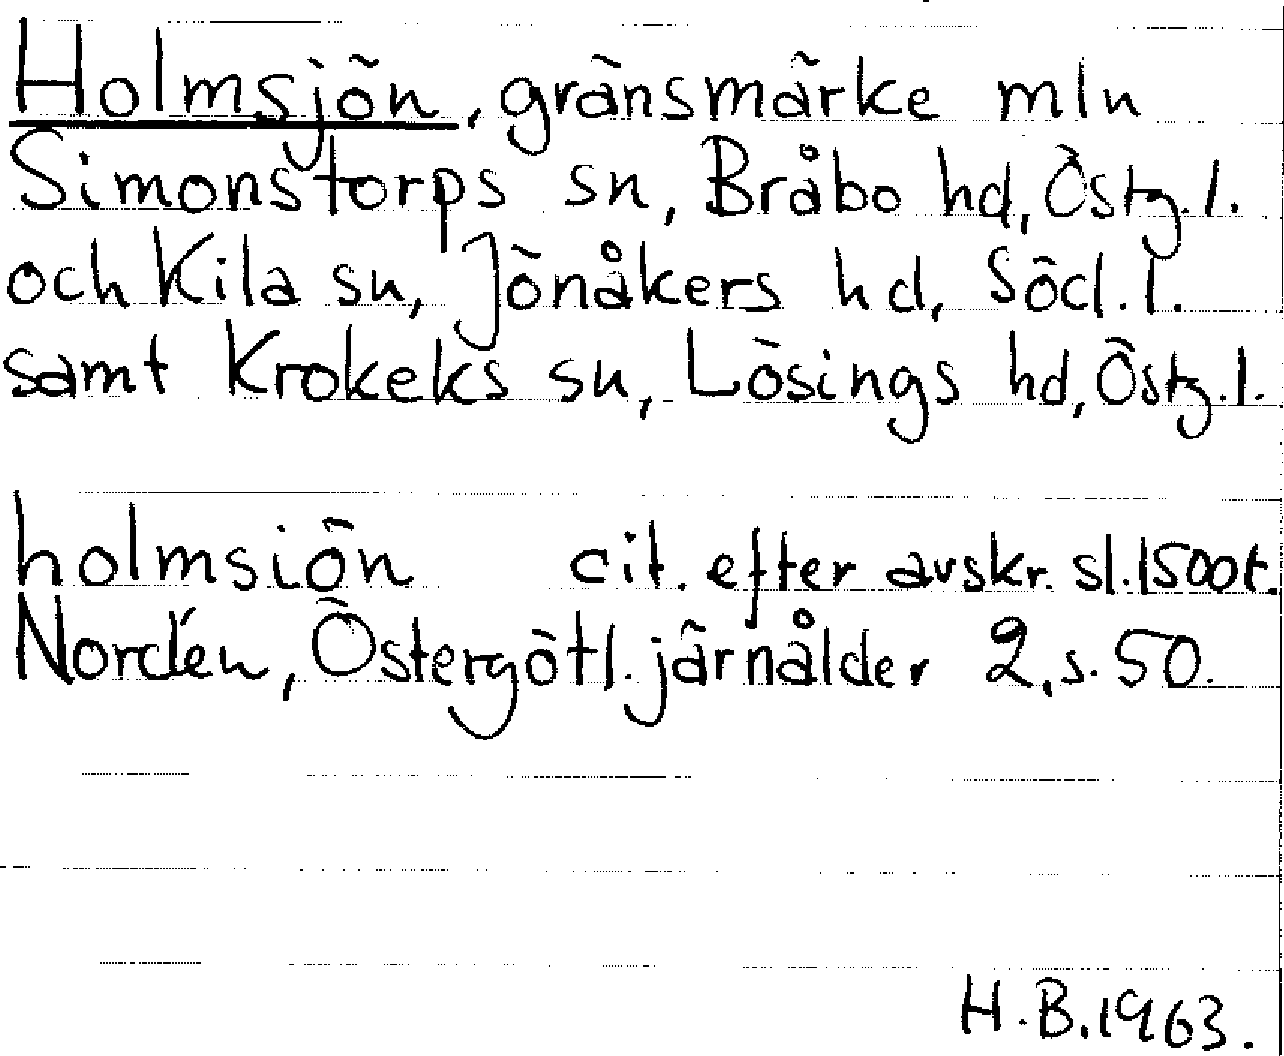 Holmsjön, gränsmärke mln
Simonstorps sn, Bråbo hd, Östg.l.
och Kila sn, Jönåkers hd, Söd.l.
samt Krokeks sn, Lösings hd, Östg.l.
holmsiön cit. efter avskr. sl.1500t.
Nordén, Östergötl. järnålder 2, s. 50.
H.B.1963.